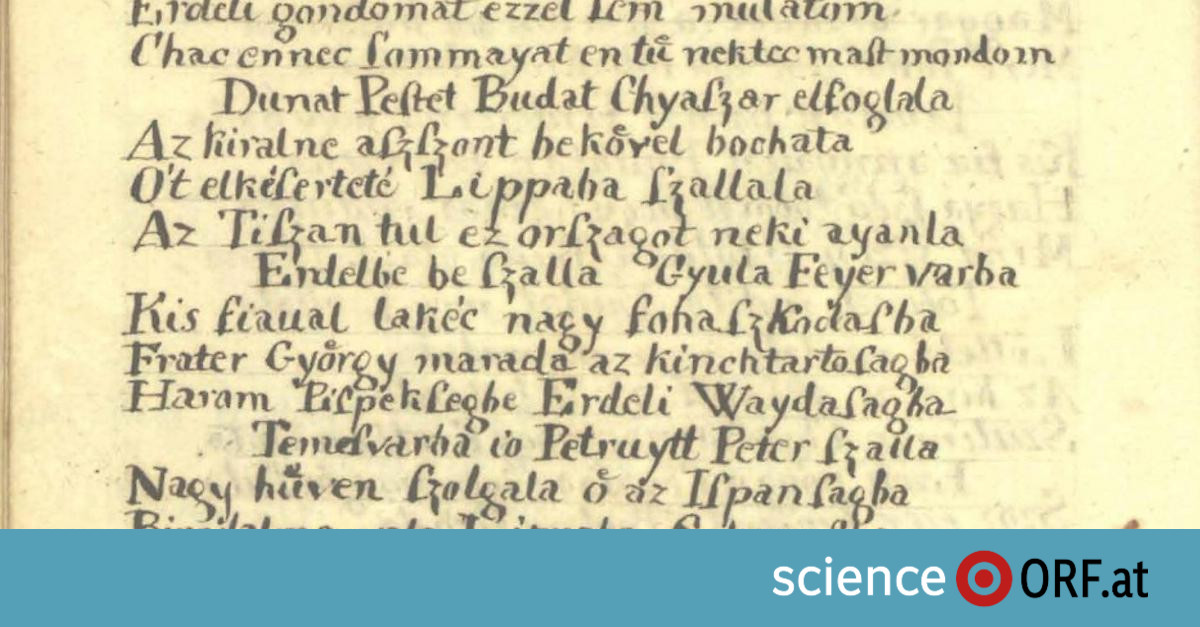 Erdeli gondomat ezzel ſem mulatom
Chac ennec ſommayat en tű nektec maſt mondom
Dunat Peſtet Budat Chyaſzar elfoglala
Az kiralne aſzſzont bekővel bochata
Ot elkéſerteté Lippaba ſzallala
Az Tiſzan tul ez orſzagot neki ayanla
Erdelbe be ſzalla Gyula Feyer varba
Kis fiaual lakéc nagy fohaſzkodaſba
Frater Győrgy marada az kinchtartoſagba
Harom Piſpekſegbe Erdeli Waydaſagba
Temeſvarba io Petruytt Peter ſzalla
Nagy hűven ſzolgala ő az Iſpanſagba
science ORF.at